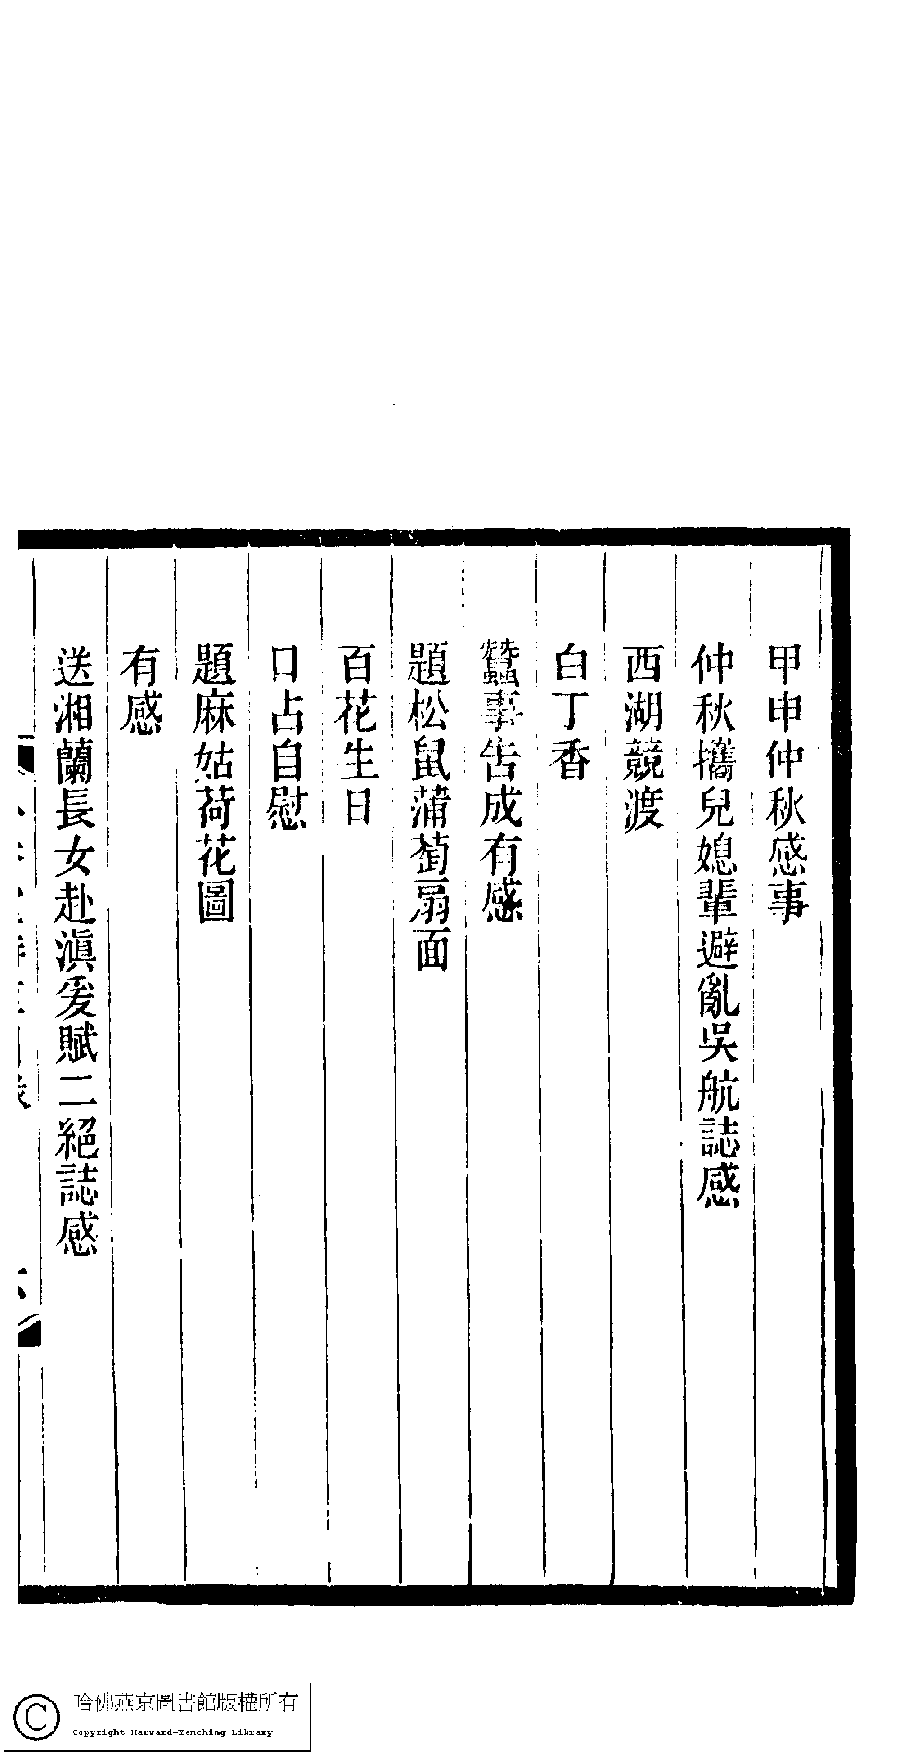 甲申仲秋感事
仲秋攜兒媳輩避亂吳航誌感
西湖競渡
白丁香
蠶事告成有感
題松鼠蒲萄扇面
百花生日
口占自慰
題麻姑荷花圖
有感
送湘蘭長女赴滇爰賦二絕誌感
哈佛燕京圖書館版權所有
Copyright Harvard-Yenching Library